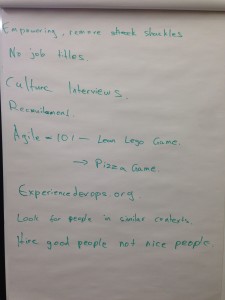 Empowering, remove shackles
No job titles.
Culture Interviews.
Recruitment.
Agile = 101 — Lean Lego Game.
→ Pizza Game.
Experiencedevops.org.
Look for people in similar contexts.
Hire good people not nice people.